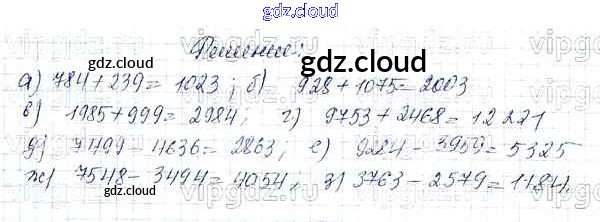 gdz.cloud
Решение:
gdz.cloud
а) 784+239= 1023; б) 928+1075=2003
в) 1985+999=2984; г) 9753+2468=12221
д) 7499-4636=2863; е) 9284-3959=5325
ж) 7548-3494=4054; з) 3763-2579=1184.
gdz.cloud